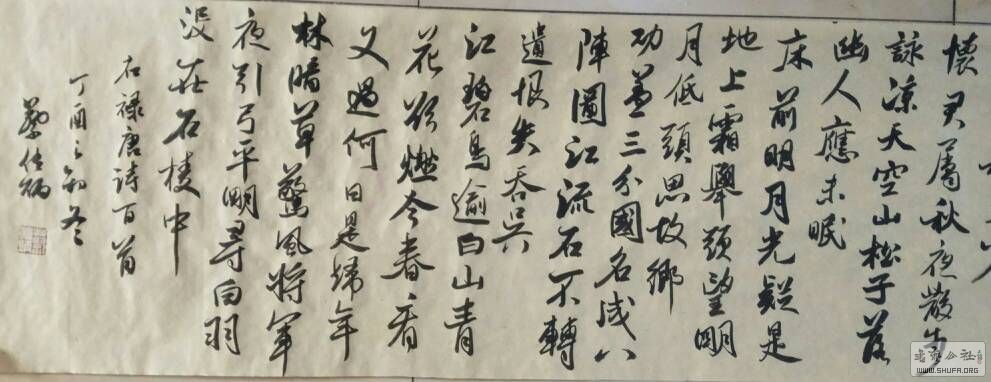 懷君屬秋夜散步
詠涼天空山松子落
幽人應未眠
床前明月光疑是
地上霜舉頭望明
月低頭思故鄉
功蓋三分國名成八
陣圖江流石不轉
遺恨失吞吳
江碧鳥逾白山青
花欲燃今春看
又過何日是歸年
林暗草驚風將軍
夜引弓平明尋白羽
没在石棱中
右禄唐詩百首
丁酉之初冬
蔡
書法公社
WWW.SHUFA.ORG